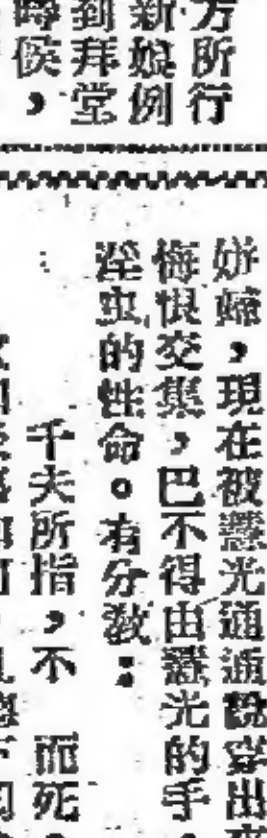 方所行
新娘例
到拜堂
時候，
姘婦，現在被慧光通通說穿出來
悔恨交集，巴不得由慧光的手
淫虫的性命。有分教：
千夫所指，不　而死。